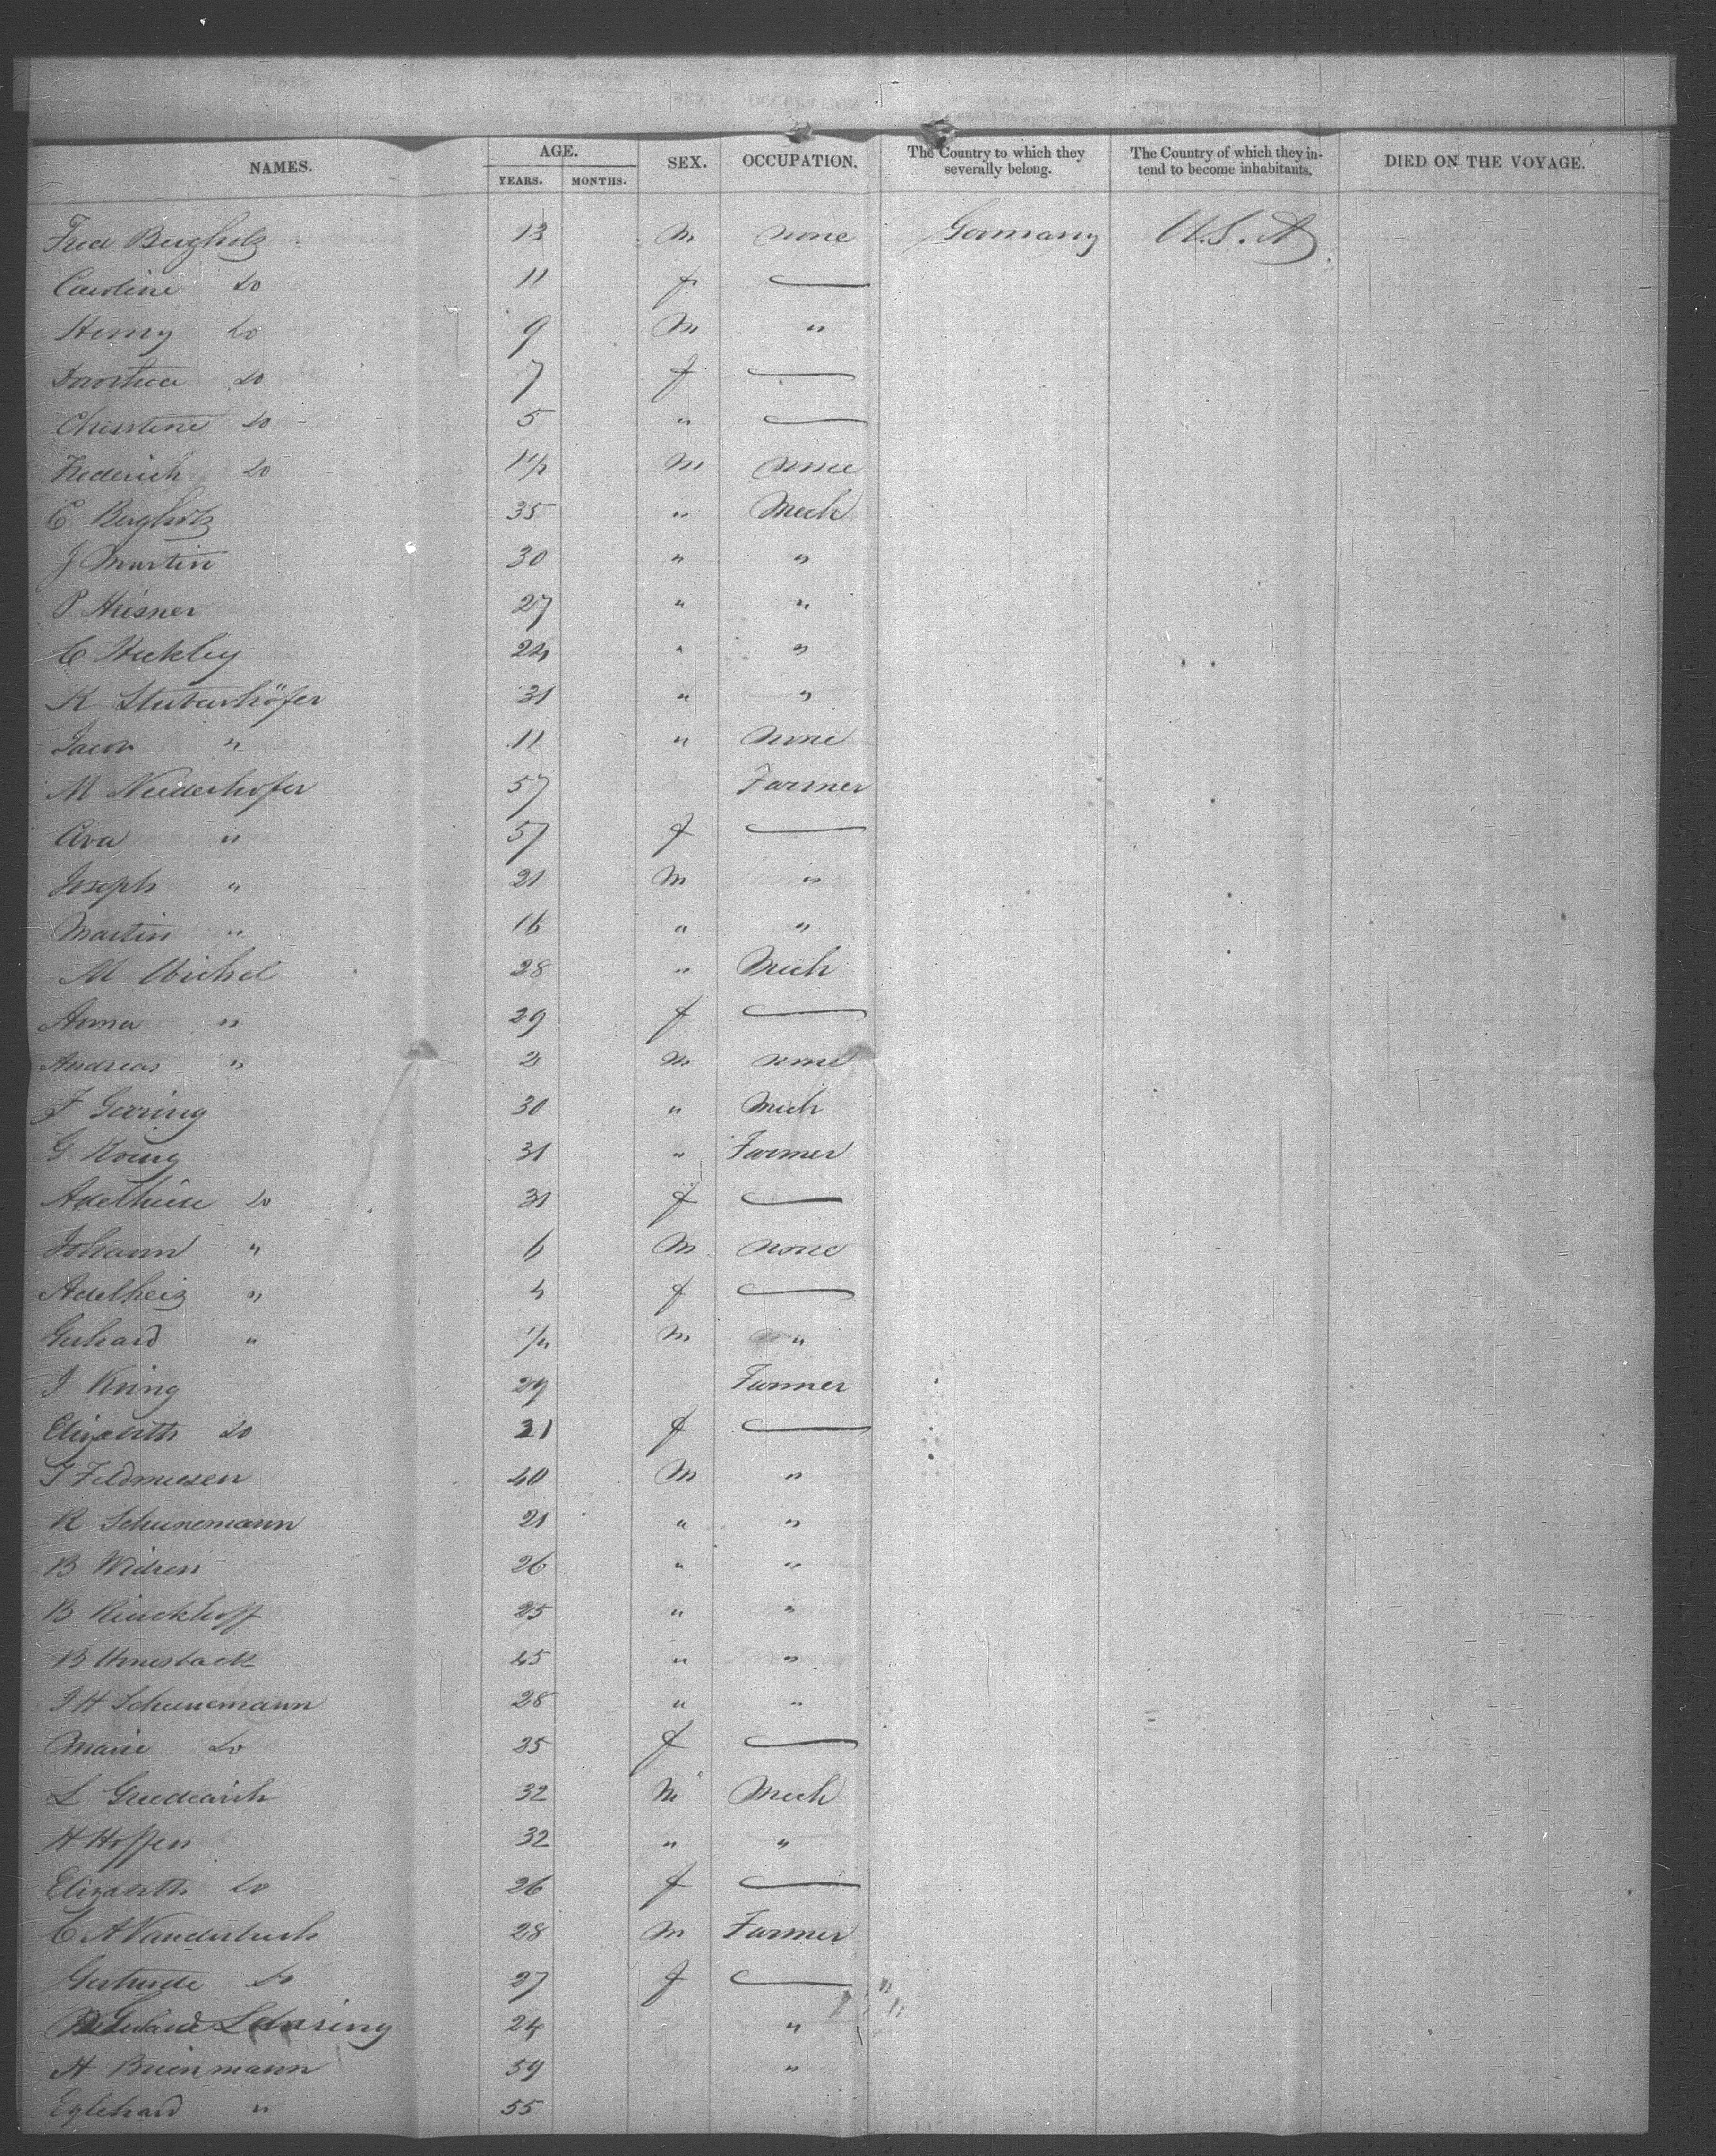 NAMES. AGE. YEARS. MONTHS. SEX. OCCUPATION. The Country to which they severally belong. The Country of which they intend to become inhabitants. DIED ON THE VOYAGE.
Fred Bergholz 13 m none Germany U.S.A
Caroline do 11 f
Henry do 9 m "
Dorothea do 7 f
Christine do 5 "
Frederich do 1 1/2 m none
C Bergholz 35 " Mech
J Martin 30 " "
P Heisner 27 " "
C Heckley 24 " "
K Stuberhöfer 31 " "
Jacob " 11 " none
M Niederhofer 57 Farmer
Eva " 57 f
Joseph " 21 m "
Martin " 16 " "
M Michel 28 " Mech
Anna " 29 f
Andreas " 2 m none
F Gerring 30 " Mech
G Kring 31 " Farmer
31 f
Johann " 6 m none
Adelheid " 4 f
Gerhard " m "
J Kring 29 Farmer
Elizabeth do 21 f
40 m "
R Schunemann 21 " "
B 26 " "
B 25 " "
B 45 " "
J H Schunemann 28 " "
Marie do 25 f
L 32 m Mech
H Hoffen 32 " "
Elizabeth do 26 f
C A Vanderbush 28 m Farmer
Gertrude do 27 f
Lansing 24 "
H Brienmann 59 "
" 55